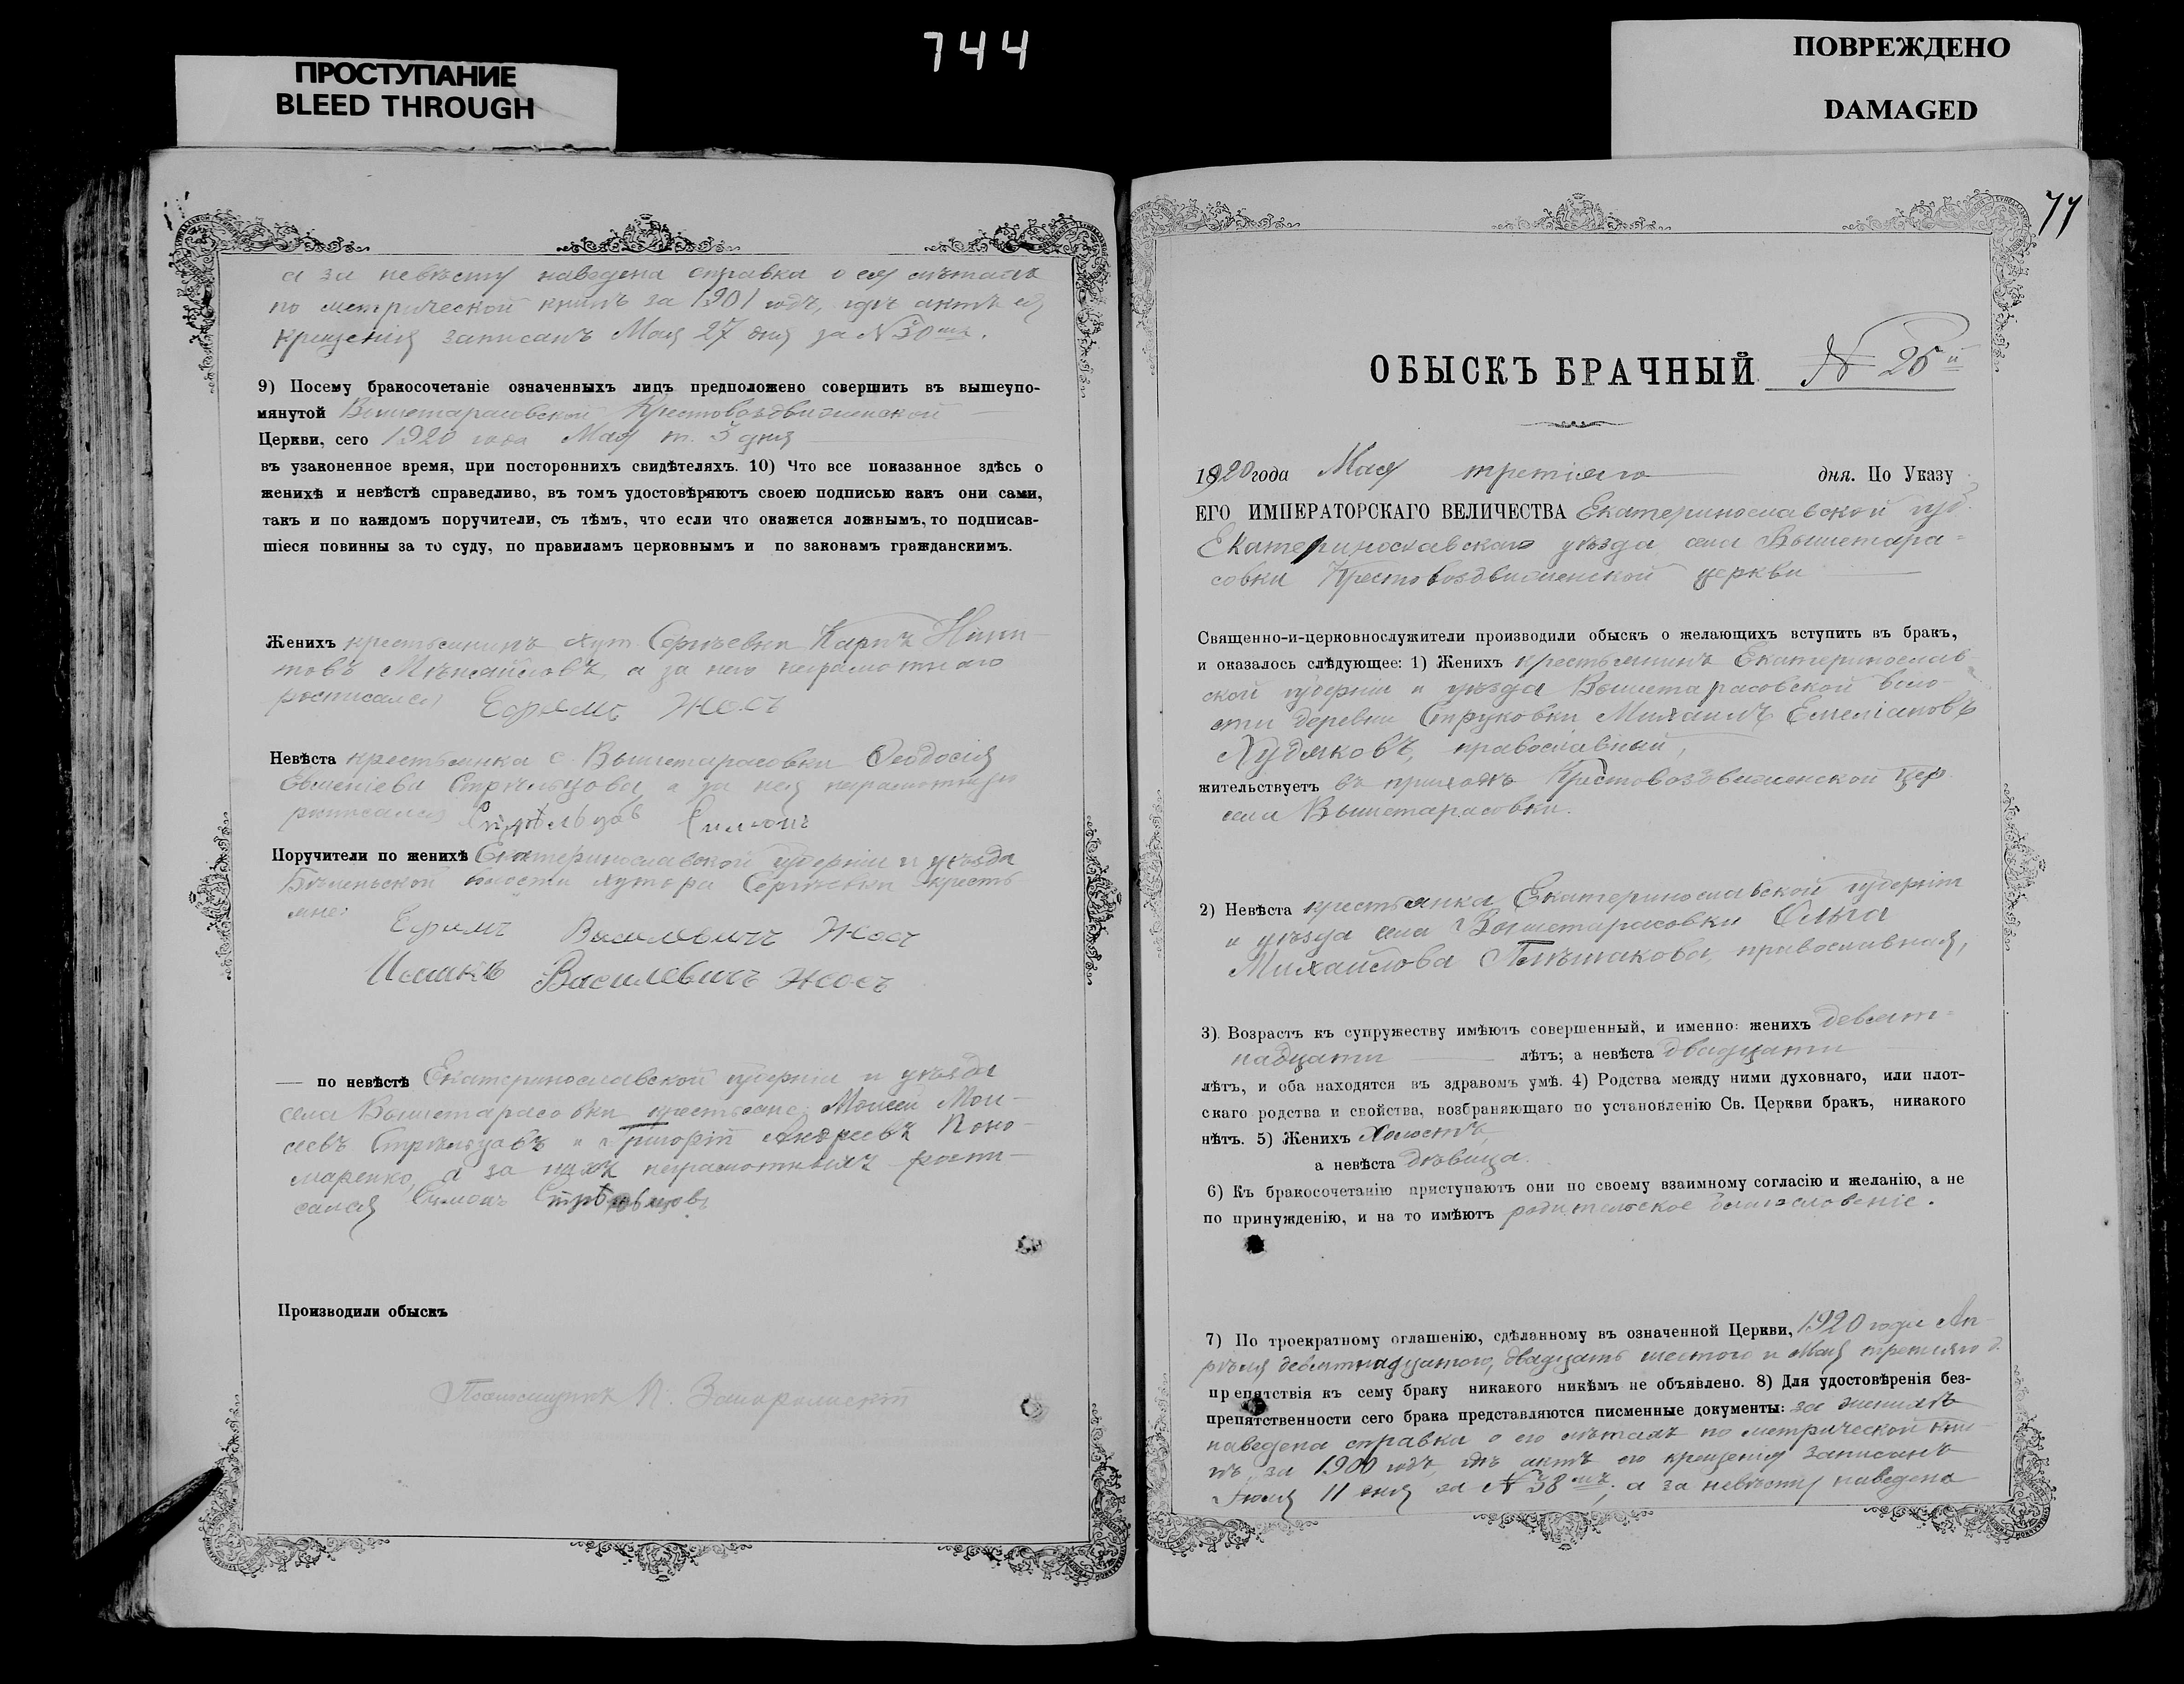 744
ПРОСТУПАНИЕ
BLEED THROUGH
ПОВРЕЖДЕНО
DAMAGED
а за невѣсту наведена справка о ея лѣтахъ
по метрической книгѣ за 1901 годъ, гдѣ актъ ея
крещенія записанъ Мая 27 дня за №30мъ.
9) Посему бракосочетаніе означенныхъ лицъ предположено совершить въ вышеупо-
мянутой Вышетарасовской Крестовоздвиженской
Церкви, сего 1920 года Мая м. 3 дня
въ узаконенное время, при постороннихъ свидѣтеляхъ. 10) Что все показанное здѣсь о
женихѣ и невѣстѣ справедливо, въ томъ удостовѣряютъ своею подписью какъ они сами,
такъ и по каждомъ поручители, съ тѣмъ, что если что окажется ложнымъ, то подписав-
шіеся повинны за то суду, по правиламъ церковнымъ и по законамъ гражданскимъ.
Женихъ крестьянинъ хут. Сергѣевки Карпъ
а за него неграмотнаго
росписался Ефимъ Жосъ
Невѣста крестьянка с. Вышетарасовки Ѳеодосія
Стрѣльцова, а за нея неграмотную
росписался Стрѣльцовъ Симонъ
Поручители по женихѣ Екатеринославской губерніи и уѣзда
волости хутора Сергѣевки кресть-
яне:
Ефимъ Васильевичъ Жосъ
Василевичъ Жосъ
— по невѣстѣ Екатеринославской губерніи и уѣзда
села Вышетарасовки крестьяне: Моисей Мои-
сеевъ Стрѣльцовъ и Григорій Андреевъ Поно-
маренко, а за нихъ неграмотныхъ роспи-
сался Симонъ Стрѣльцовъ
Производили обыскъ
Псаломщикъ
77
ОБЫСКЪ БРАЧНЫЙ № 25й
1920 года Мая третьяго дня. По Указу
ЕГО ИМПЕРАТОРСКАГО ВЕЛИЧЕСТВА Екатеринославской губ.
Екатеринославскаго уѣзда села Вышетара-
совки Крестовоздвиженской церкви
Священно-и-церковнослужители производили обыскъ о желающихъ вступить въ бракъ,
и оказалось слѣдующее: 1) Женихъ крестьянинъ Екатеринослав-
ской губерніи и уѣзда Вышетарасовской воло-
сти деревни Струковки Михаилъ Емеліановъ
Худяковъ, православный,
жительствуетъ въ приходѣ Крестовоздвиженской цер.
села Вышетарасовки.
2) Невѣста крестьянка Екатеринославской губерніи
и уѣзда села Вышетарасовки Ольга
Михайлова православная,
3). Возрастъ къ супружеству имѣютъ совершенный, и именно: женихъ девят-
надцати лѣтъ; а невѣста двадцати
лѣтъ, и оба находятся въ здравомъ умѣ. 4) Родства между ними духовнаго, или плот-
скаго родства и свойства, возбраняющаго по установленію Св. Церкви бракъ, никакого
нѣтъ. 5) Женихъ холостъ,
а невѣста дѣвица.
6) Къ бракосочетанію приступаютъ они по своему взаимному согласію и желанію, а не
по принужденію, и на то имѣютъ родительское благословеніе.
7) По троекратному оглашенію, сдѣланному въ означенной Церкви, 1920 года Ап-
рѣля девятнадцатого, двадцать шестого и Мая третьяго д.
препятствія къ сему браку никакого никѣмъ не объявлено. 8) Для удостовѣренія без-
препятственности сего брака представляются писменные документы: за жениха
наведена справка о его лѣтахъ по метрической кни-
гѣ за 1900 годъ, гдѣ актъ его крещенія записанъ
11 дня за №38мъ; а за невѣсту наведена